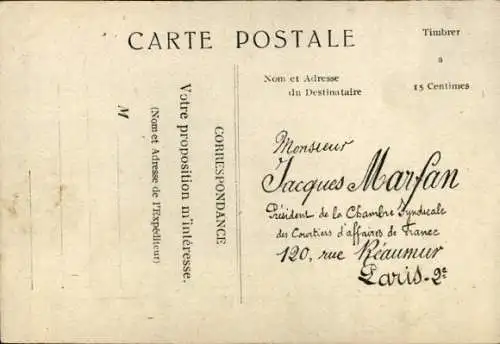 CARTE POSTALE
Timbrer
a
15 Centimes
Nom et Adresse
du Destinataire
CORRESPONDANCE
Votre proposition m'intéresse.
(Nom et Adresse de l'Expéditeur)
M
Monsieur
Jacques Marfan
Président de la Chambre Syndicale
des Courtiers d'affaires de France
120, rue Réaumur
Paris-2e